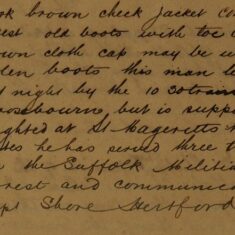 brown check jacket co
est old boots with toe c
own cloth cap may be w
len boots this man l
t night by the 10
sebourn, but is supp
ghted at St Mageretts
tes he has served three t
the Suffolk Militia
rest and communica
Shore Hertford